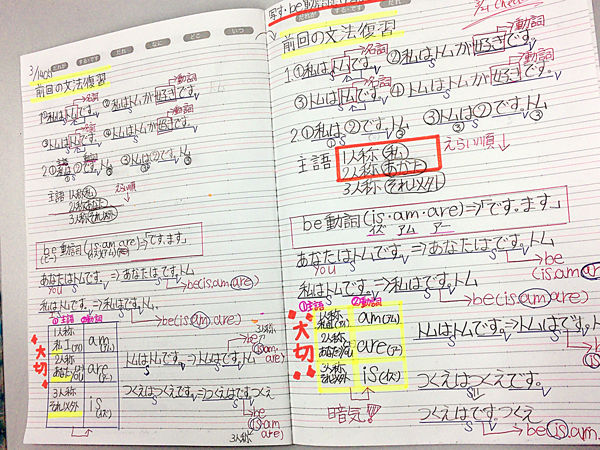 3/14(火)
だれが する・です だれ なに どこ いつ
前回の文法復習
名詞 動詞
1.①私はトムです。②私はトムが好きです。
S V S V
名詞 動詞
③トムはトムです。④トムはトムが好きです。
S V S V
2.①私は②です。トム ③トムは②です。トム
主語 1人称(私) えらい順
2人称(あなた)
3人称(それ以外)
be動詞(is・am・are)=「です。ます」
(ビー) (イズ) (アム) (アー)
あなたはトムです。⇒あなたはです。トム
You S V S V
be(is.am.are)
私はトムです。⇒私はです。トム
S V S V
be(is.am.are)
①主語 ②動詞
大切
1人称
私 I(アイ)
am
(アム)
2人称
あなた/You
are
(アー)
3人称
それ以外
is
(イズ)
トムはトムです。⇒トムはです。トム
S V S V
3人称
be
(is.am.are)
つくえはつくえです。⇒つくえはです。つくえ
S V S V
be
(is am are)
3人称
写す・be動詞
だれが する・です だれ
前回の文法復習
名詞 動詞
1.①私はトムです。②私はトムが好きです。
S V S V
名詞 動詞
③トムはトムです。④トムはトムが好きです。
S V S V
2.①私は②です。トム ③トムは②です。トム
S V S V
主語 1人称(私) えらい順
2人称(あなた)
3人称(それ以外)
be動詞(is・am・are)=「です。ます」
イズ アム アー
あなたはトムです。⇒あなたはです。トム
You S V S V
be
(is.am.are)
私はトムです。⇒私はです。トム
S V S V
be(is.am.are)
①主語 ②動詞
大切
1人称
私 I(アイ)
am(アム)
2人称
あなた/You
are(アー)
3人称
それ以外
is(イズ)
暗記!!!
トムはトムです。⇒トムはです。トム
S V S V
be
(is.am.are)
つくえはつくえです。
S V
つくえはです。つくえ
S V
be(is.am.are)